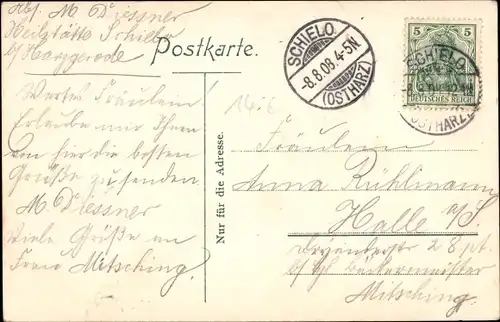 Abs. M Diessner
Heilstätte Schielo
b/ Harzgerode
Postkarte.
SCHIELO.
-8.8.08.4-5N
(OSTHARZ)
5 5
DEUTSCHES REICH
SCHIELO.
(OSTHARZ)
14.6
Wertes Fräulein!
Erlaube mir Ihnen
von hier die besten
Grüße zu senden
M Diessner
Viele Grüße an
Frau Mitsching.
Nur für die Adresse.
Fräulein
Anna Rühlmann
Halle a/S.
28 pt.
b/ Bäckermeister
Mitsching.